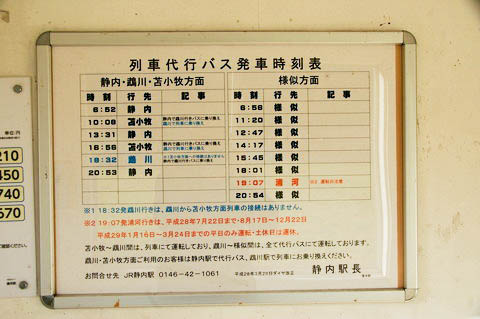 列車代行バス発車時刻表
静内・鵡川・苫小牧方面
時刻 行先 記事
6:52 静内
10:08 苫小牧 静内で鵡川行きバスに乗り換え 鵡川で列車に乗り換え
13:31 静内
16:56 苫小牧 静内で鵡川行きバスに乗り換え 鵡川で列車に乗り換え
18:32 鵡川
20:53 静内
様似方面
時刻 行先 記事
6:56 様似
11:20 様似
12:47 様似
14:17 様似
15:45 様似
18:01 様似
19:07 浦河
20:54 様似
※1 18:32発鵡川行きは、鵡川から苫小牧方面列車の接続はありません。
※2 19:07発浦河行きは、平成28年7月22日まで・8月17日～12月22日
平成29年1月16日～3月24日までの平日のみ運転・土休日は運休。
苫小牧～鵡川間は、列車にて運転しており、鵡川～様似間は、全て代行バスにて運転しております。
鵡川・苫小牧方面ご利用のお客様は静内駅で代行バス、鵡川駅で列車にお乗り換えください。
お問合せ先 JR静内駅 0146-42-1061
平成28年3月26日ダイヤ改正
静内駅長
単位:円
210
450
740
670